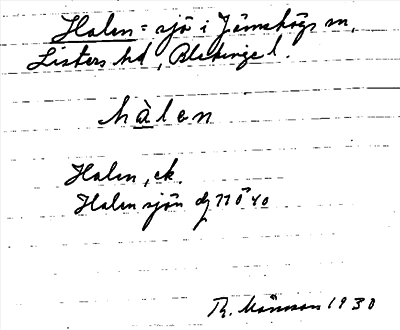 Halen = sjö i Jämshögs sn,
Listers hd, Blekinge l.
hàlen
Halen, ek.
Halen sjön dj 110 ö 40
Månsson 1930